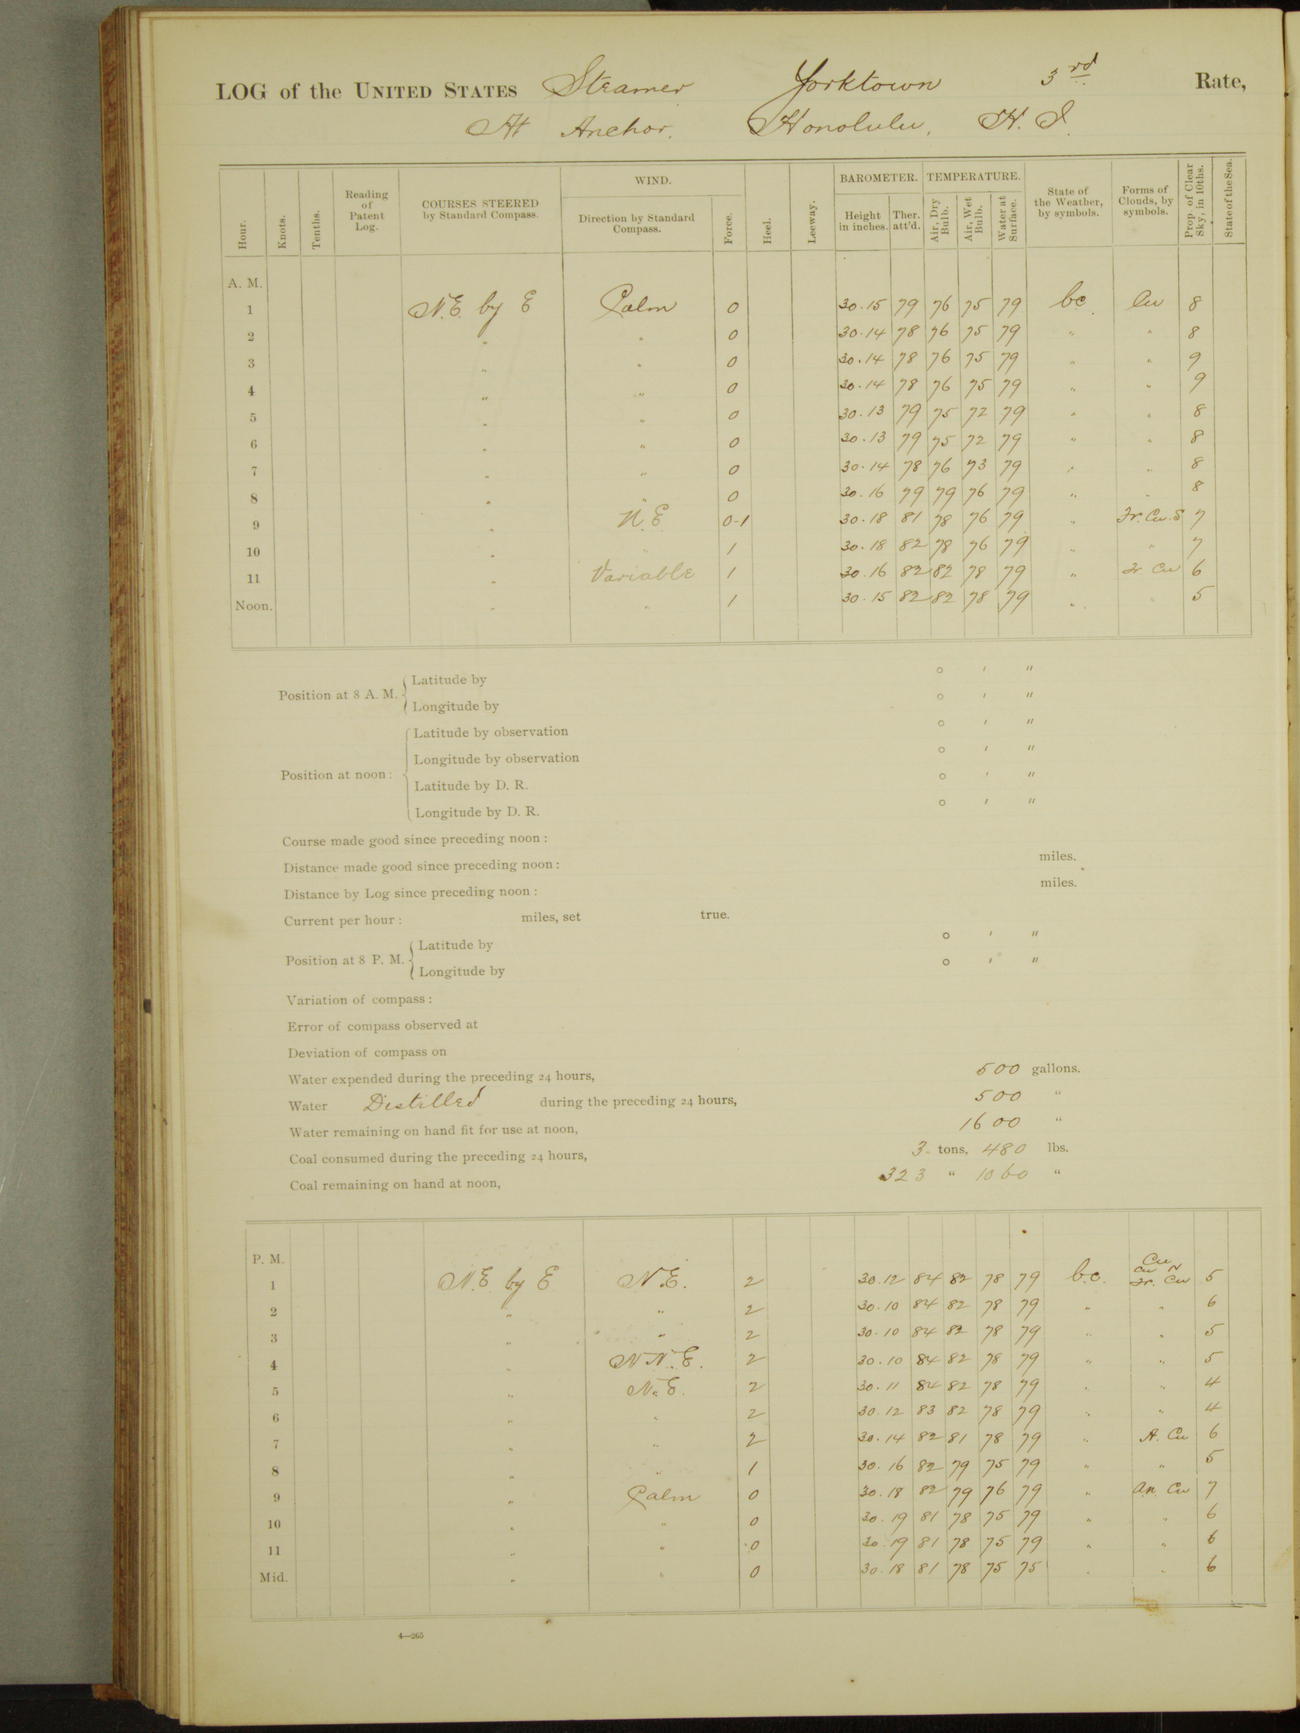 LOG of the UNITED STATES Steamer Yorktown 3rd Rate,
At Anchor, Honolulu, H. I.
Hour. Knots. Tenths. Reading of Patent Log. COURSES STEERED by Standard Compass. WIND. Direction by Standard Compass. Force. Heel. Leeway. BAROMETER. Height in inches. Ther. att'd. TEMPERATURE. Air, Dry Bulb. Air, Wet Bulb. Water at Surface. State of the Weather, by symbols. Forms of Clouds, by symbols. Prop. of Clear Sky, in 10ths. State of the Sea.
A. M.
1 N.E. by E Calm 0 30.15 79 76 75 79 bc Cu 8
2 " " 0 30.14 78 76 75 79 " " 8
3 " " 0 30.14 78 76 75 79 " " 9
4 " " 0 30.14 78 76 75 79 " " 9
5 " " 0 30.13 79 75 72 79 " " 8
6 " " 0 30.13 79 75 72 79 " " 8
7 " " 0 30.14 78 76 73 79 " " 8
8 " " 0 30.16 79 79 76 79 " " 8
9 " N.E 0-1 30.18 81 78 76 79 " Fr. Cu. S 7
10 " " 1 30.18 82 78 76 79 " " 7
11 " Variable 1 30.16 82 82 78 79 " Fr Cu 6
Noon. " " 1 30.15 82 82 78 79 " " 5
Position at 8 A. M. Latitude by ° ' "
Longitude by ° ' "
Position at noon: Latitude by observation ° ' "
Longitude by observation ° ' "
Latitude by D. R. ° ' "
Longitude by D. R. ° ' "
Course made good since preceding noon:
Distance made good since preceding noon: miles.
Distance by Log since preceding noon: miles.
Current per hour: miles, set true.
Position at 8 P. M. Latitude by ° ' "
Longitude by ° ' "
Variation of compass:
Error of compass observed at
Deviation of compass on
Water expended during the preceding 24 hours, 500 gallons.
Water Distilled during the preceding 24 hours, 500 "
Water remaining on hand fit for use at noon, 1600 "
Coal consumed during the preceding 24 hours, 3 tons, 480 lbs.
Coal remaining on hand at noon, 323 " 1060 "
P. M.
1 N.E. by E N.E. 2 30.12 84 82 78 79 b.c. Cu Cu N Fr. Cu 5
2 " " 2 30.10 84 82 78 79 " " 6
3 " " 2 30.10 84 82 78 79 " " 5
4 " N N.E. 2 30.10 84 82 78 79 " " 5
5 " N.E. 2 30.11 84 82 78 79 " " 4
6 " " 2 30.12 83 82 78 79 " " 4
7 " " 2 30.14 82 81 78 79 " A. Cu 6
8 " " 1 30.16 82 79 75 79 " " 5
9 " Calm 0 30.18 82 79 76 79 " Cu 7
10 " " 0 30.19 81 78 75 79 " " 6
11 " " 0 30.19 81 78 75 79 " " 6
Mid. " " 0 30.18 81 78 75 75 " " 6
4—265